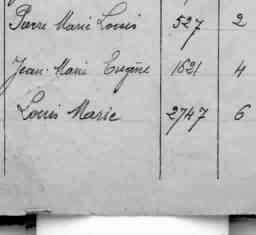 Pierre Marie Louis 527 2
Jean-Marie Eugène 1621 4
Louis Marie 2747 6